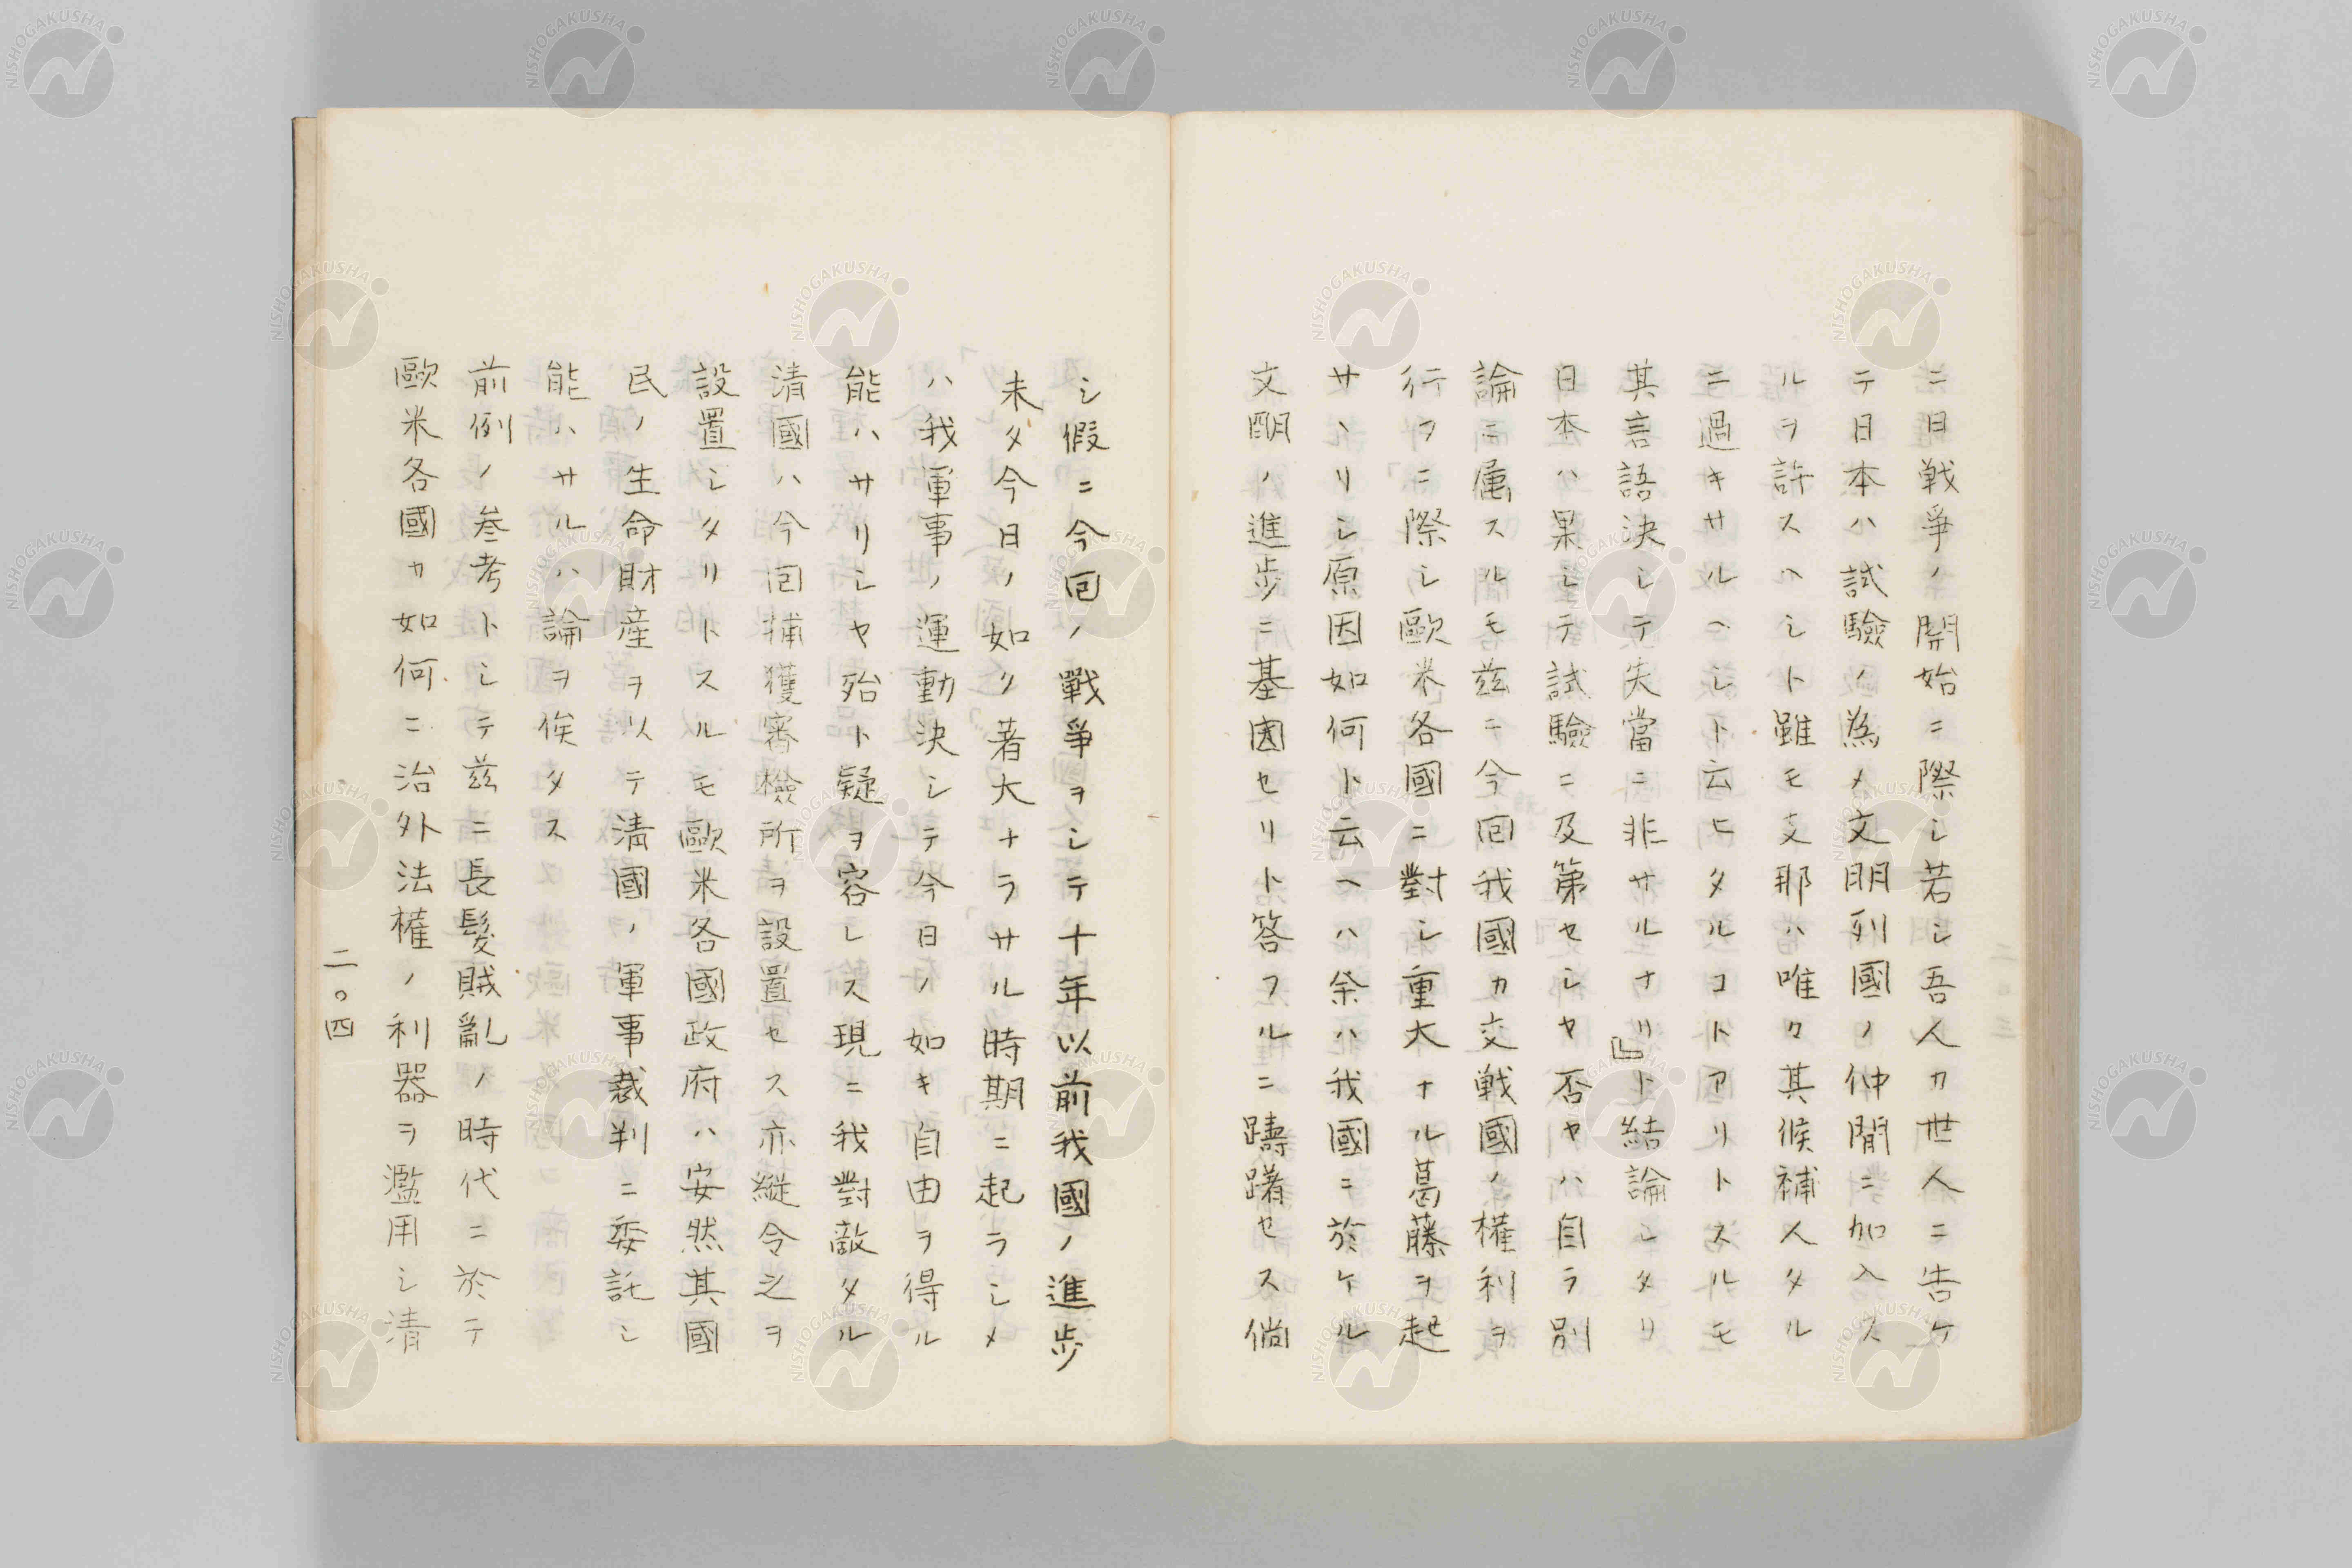 ニ日戦爭ノ開始ニ際シ若シ吾人カ世人ニ告ケ
テ日本ハ試驗ノ為メ文明列國ノ仲間ニ加入ス
ルヲ許スヘシト雖モ支耶ハ唯タ其候補人タル
ニ過キサルヘシト云ヒタルコトアリトスルモ
其言語決シテ失當ニ非サルナリ』ト結論シタリ
日本ハ果シテ試驗ニ及第セシヤ否ヤハ自ラ別
論ニ属スルモ茲ニ今回我國カ交戦國ノ權利ヲ
行フニ際シ歐米各國ニ對シ重大ナル葛藤ヲ起
サヽリシ原因如何ト云ヘハ余ハ我國ニ於ケル
文明ノ進歩ニ基因セリト答フルニ躊躇セス倘
シ假ニ今回ノ戰爭ヲシテ十年以前我國ノ進歩
未タ今日ノ如ク著大ナラサル時期ニ起ラシメ
ハ我軍事ノ運動決シテ今日ノ如キ自由ヲ得ル
能ハサリシヤ殆ト疑ヲ容レス現ニ我對敵タル
清國ハ今回捕獲審檢所ヲ設置セス亦縦令之ヲ
設置シタリトスルモ歐米各國政府ハ安然其國
民ノ生命財産ヲ以テ清國ノ軍事裁判ニ委託シ
能ハサルハ論ヲ俟タス
前例ノ参考トシテ茲ニ長髪賊亂ノ時代ニ於テ
歐米各國カ如何ニ治外法權ノ利器ヲ濫用シ清
二〇四
NISHOGAKUSHA